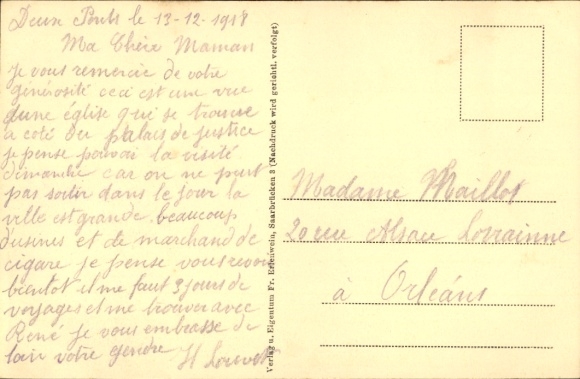 Deux Ponts le 13-12-1918
Ma Chère Maman
je vous remercie de votre
générosité ceci est une vue
dune église qui se trouve
a coté du palais de justice
je pense pouvoi la visité
dimanche car on ne peut
pas sortir dans le jour la
ville est grande beaucoup
d'usines et de marchand de
cigare je pense vous revoir
bientot il me faut 3 jours de
voyages et me trouver avec
René je vous embrasse de
loin votre gendre H Louvet
Verlag u. Eigentum Fr. Erfenwein, Saarbrücken 3 (Nachdruck wird gerichtl. verfolgt)
Madame Maillot
20 rue Alsace Lorrainne
à Orléans